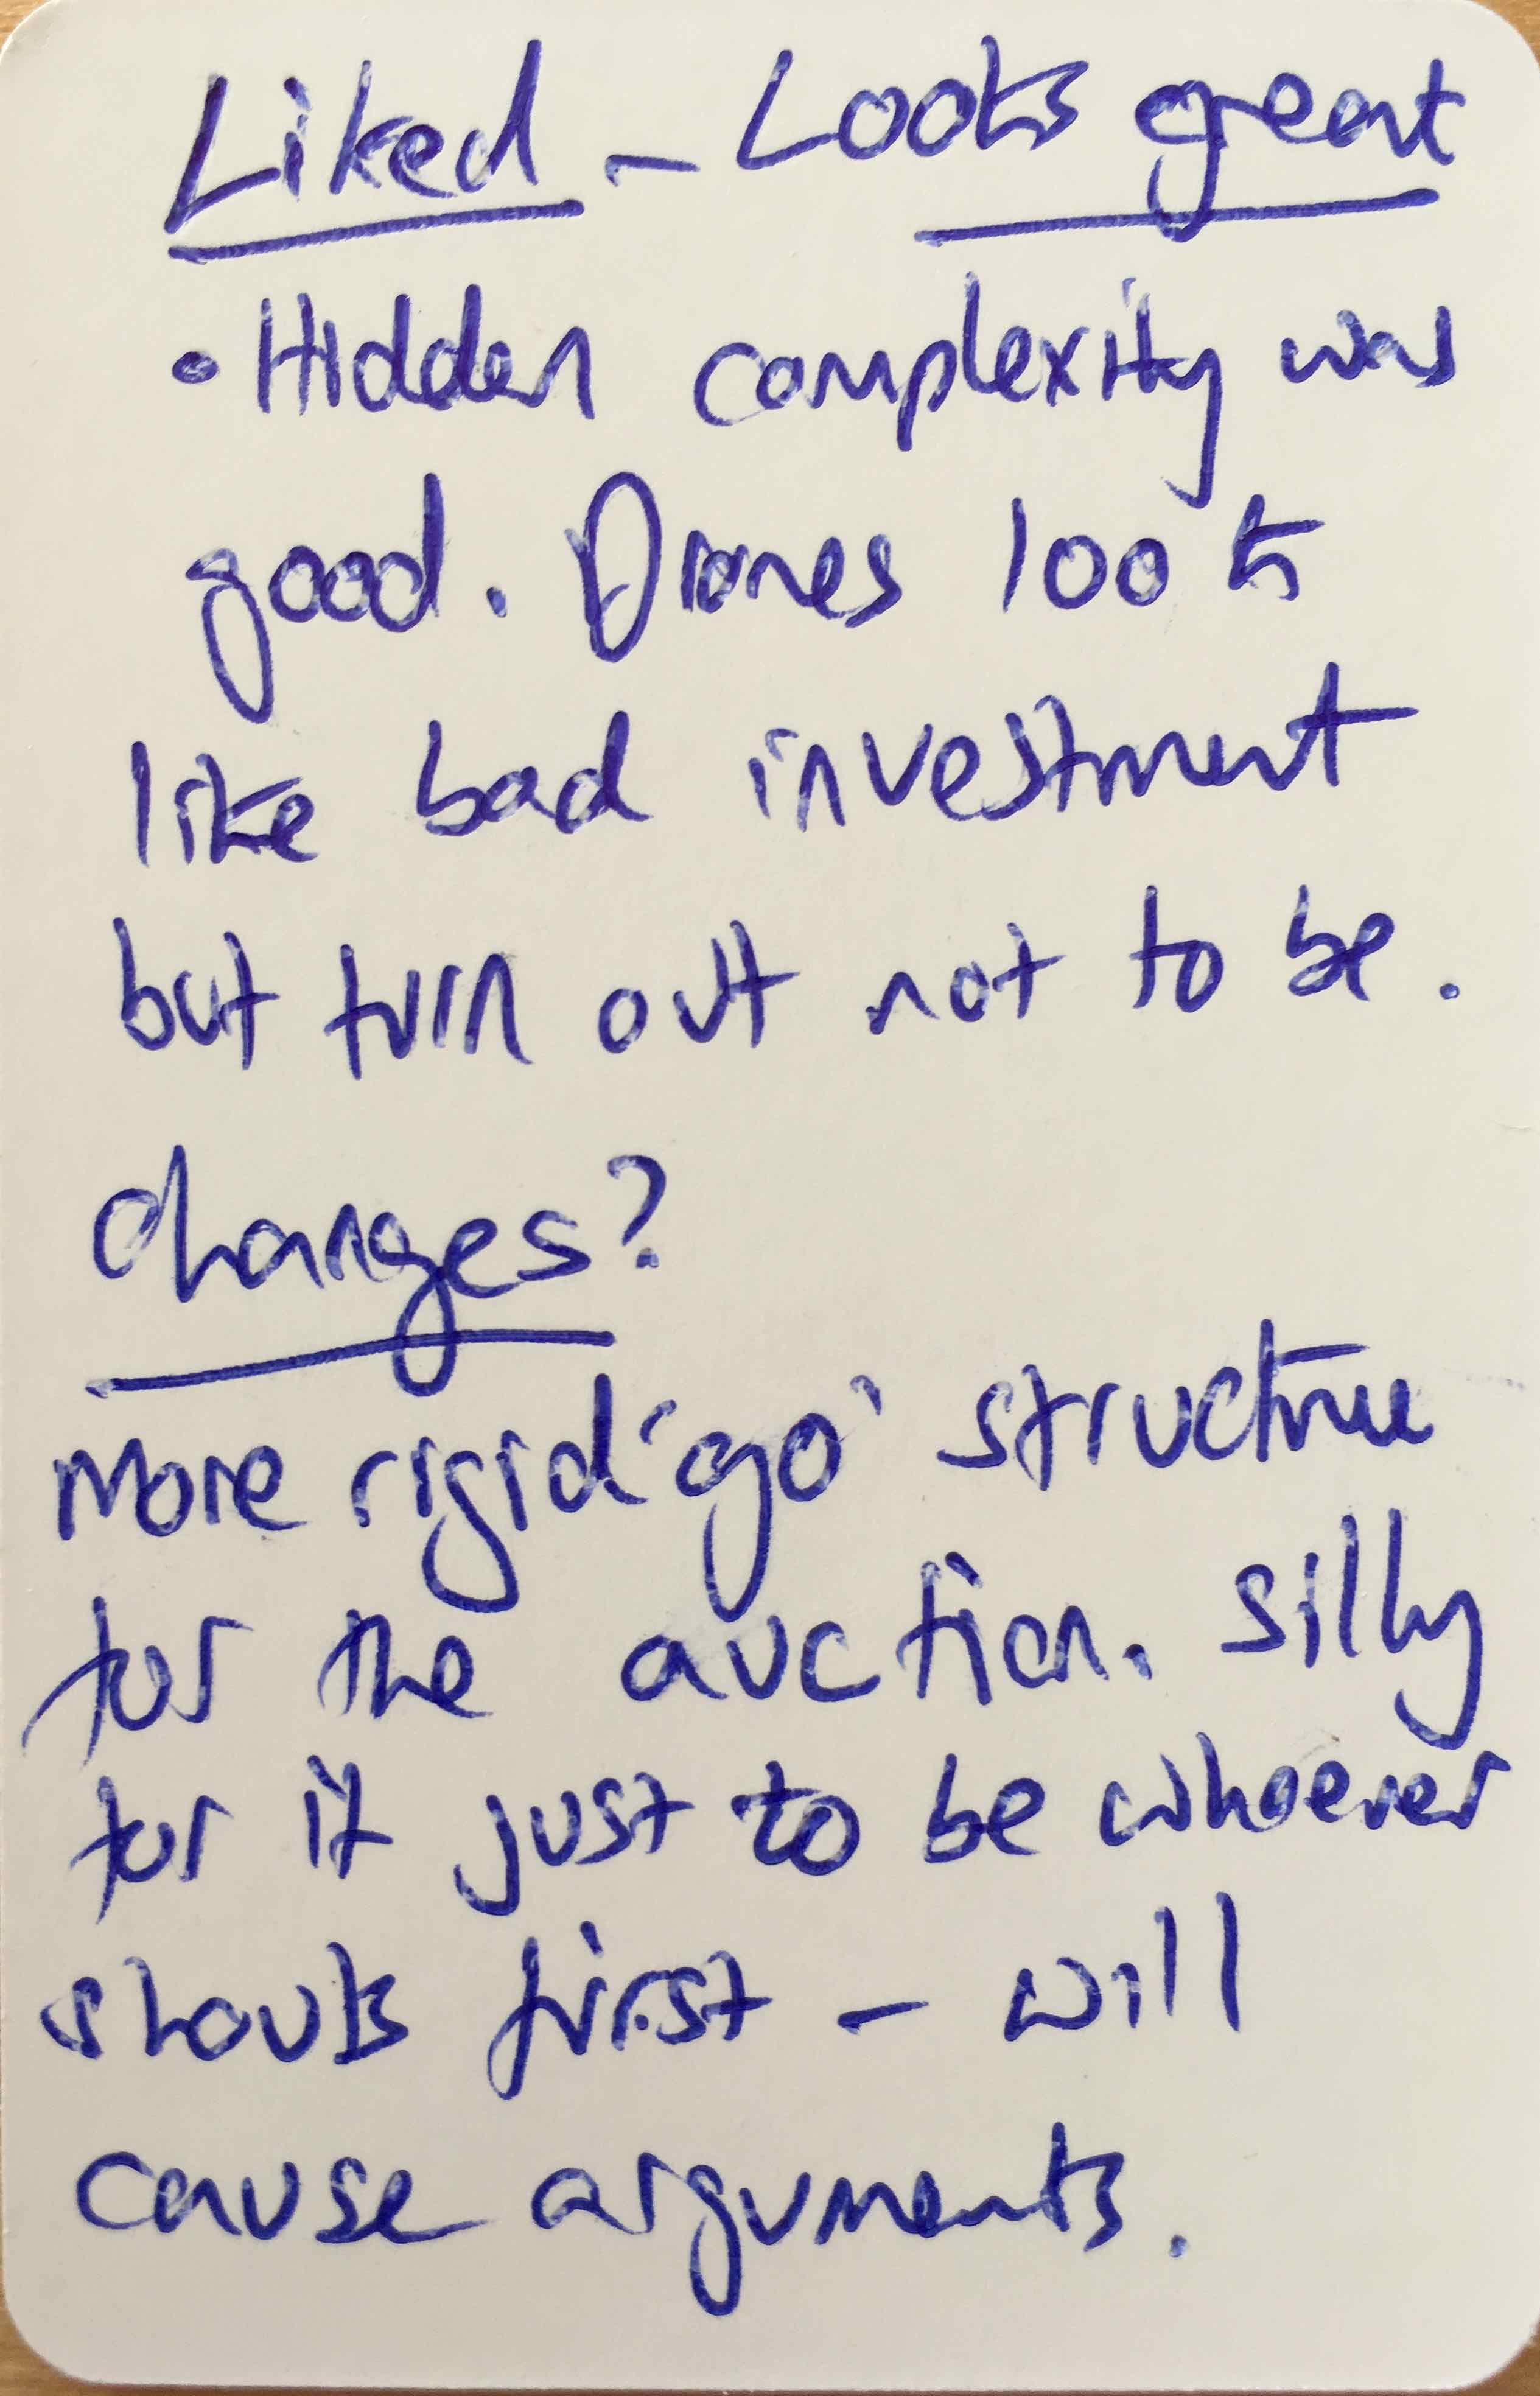 Liked - Looks great
• Hidden complexity was
good. Drones look
like bad investment
but turn out not to be.
Changes?
More rigid 'go' structure
for the auction. Silly
for it just to be whoever
shouts first - will
cause arguments.